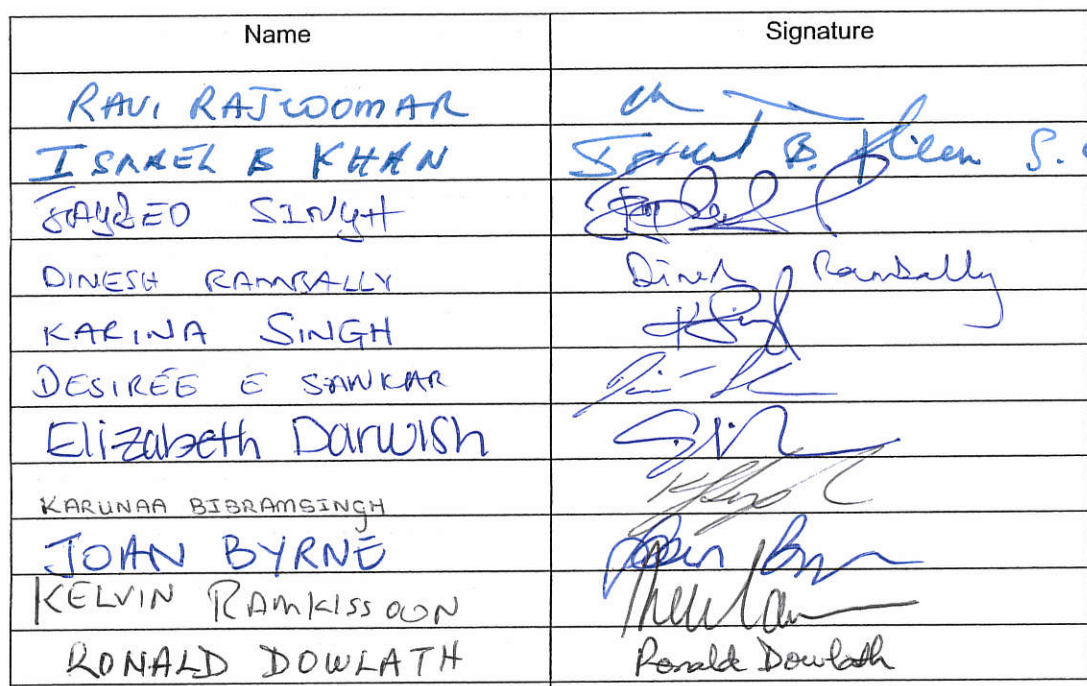 Name Signature
RAVI RAJCOOMAR
ISRAEL B KHAN Israel B. Khan S.
JAYZED SINGH
DINESH RAMBALLY Dinesh Rambally
KARINA SINGH KSingh
DESIRÉE E SANKAR
Elizabeth Darwish
KARUNAA BISRAMSINGH
JOAN BYRNE Joan Byrne
KELVIN RAMKISSOON
RONALD DOWLATH Ronald Dowlath